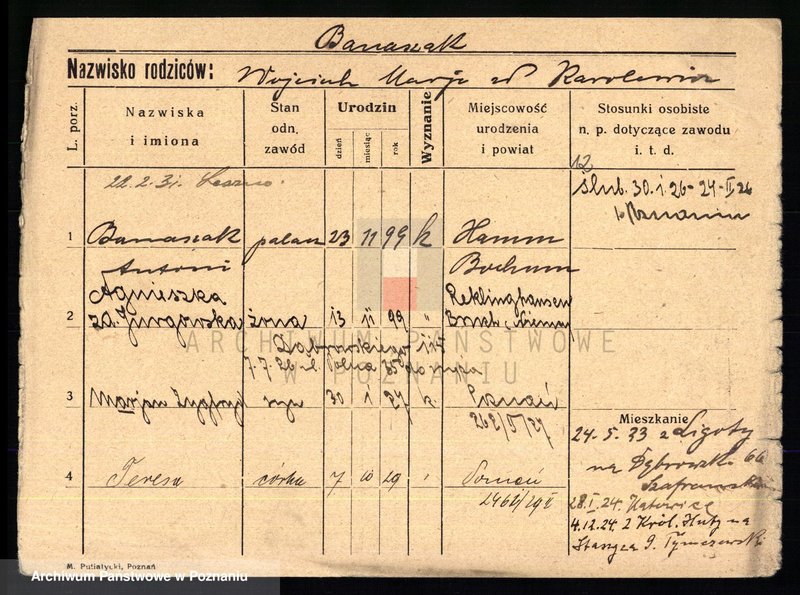 Banaszak
Nazwisko rodziców: Wojciech Marja Karolewicz
L. porz.
Nazwiska i imiona
Stan odn. zawód
Urodzin
dzień
miesiąc
rok
Wyznanie
Miejscowość urodzenia i powiat
Stosunki osobiste n. p. dotyczące zawodu i. t. d.
12
22. 2. 31. Leszno.
ślub. 30. 1. 26 - 24 - II. 26
Poznaniu
1 Banaszak palacz 23 11 99 k Hamm
Antoni Bochum
Agnieszka Reklinghausen
2 zd. Jurgowska żona 13 11 99 " Niemcy
Dąbrowskiego
7. 7. 26 ul. Polna 35
3 Marjan Zygfryd syn 30 1 27 k. Poznań
262/V/27
Mieszkanie
24. 5. 33 z Ligoty
na Dąbrowski 66
4 Teresa córka 7 10 29 Poznań
28. I. 24. Katowice
4. 12. 24. z Król. Huty na
9. Tymczewski
M. Putiatycki, Poznań
Archiwum Państwowe w Poznaniu
ARCHIWUM PAŃSTWOWE
W POZNANIU